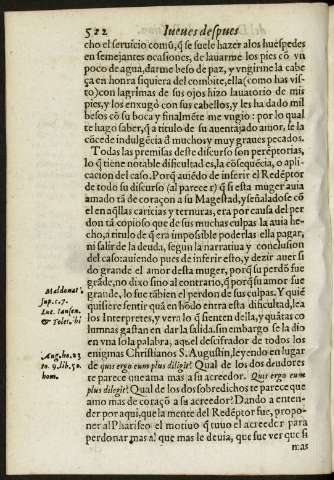 522 Iueues despues
cho el seruicio comũ, q̃ se suele hazer alos huespedes
en semejantes ocasiones, de lauarme los pies cõ vn
poco de agua, darme beso de paz, y vngirme la cabe
ça en honra siquiera del combite, ella (como has vis-
to) con lagrimas de sus ojos hizo lauatorio de mis
pies, y los enxugò con sus cabellos, y les ha dado mil
besos cõ su boca y finalmẽte me vngio: por lo qual
te hago saber, q̃ a titulo de su auentajado amor, se la
cõcede indulgẽcia d̃ muchos y muy graues pecados.
Todas las premisas deste discurso son perẽptorias,
lo q̃ tiene notable dificultad es, la cõsequẽcia, o apli-
cacion del caso. Porq̃ auiẽdo de inferir el Redẽptor
de todo su discurso (al parecer) q̃ si esta muger auia
amado tã de coraçõn a su Magestad, y señaladose cõ
el en aq̃llas caricias y ternuras, era por causa del per
don tã copioso que de sus muchas culpas la auia he-
cho, a titulo de q̃ era impossible poderlas ella pagar,
ni salir de la deuda, segun la narratiua y conclusion
del caso: auiendo pues de inferir esto, y dezir auer si
do grande el amor desta muger, porq̃ su perdõ fue
grãde, no dixo sino al contrario, q̃ porq̃ su amor fue
grande, lo fue tãbien el perdon de sus culpas. Y quiẽ
quisiere sentir quã en hõdo entra esta dificultad, lea
los Interpretes, y vera lo q̃ sienten della, y quãtas co
lumnas gastan en dar la salida. sin embargo se la dio
en vna sola palabra, aquel descifrador de todos los
enigmas Christianos S. Augustin, leyendo en lugar
de quis ergo eum plus diligit? Qual de los dos deudores
te parece que ama mas a su acreedor. Quis ergo eum
plus diligit? Qual de los dos sobredichos te parece que
amo mas de coraçõ a su acreedor? Dando a enten-
der por aqui, que la mente del Redẽptor fue, propo-
ner al Phariseo el motiuo q̃ tuuo el acreedor para
perdonar mas al que mas le deuia, que fue ver que si
mas
Maldonat.
sup. c. 7.
Luc. Iansen.
& Tolet. ibi
Aug. ho. 23
to. 9. lib. 50.
hom.